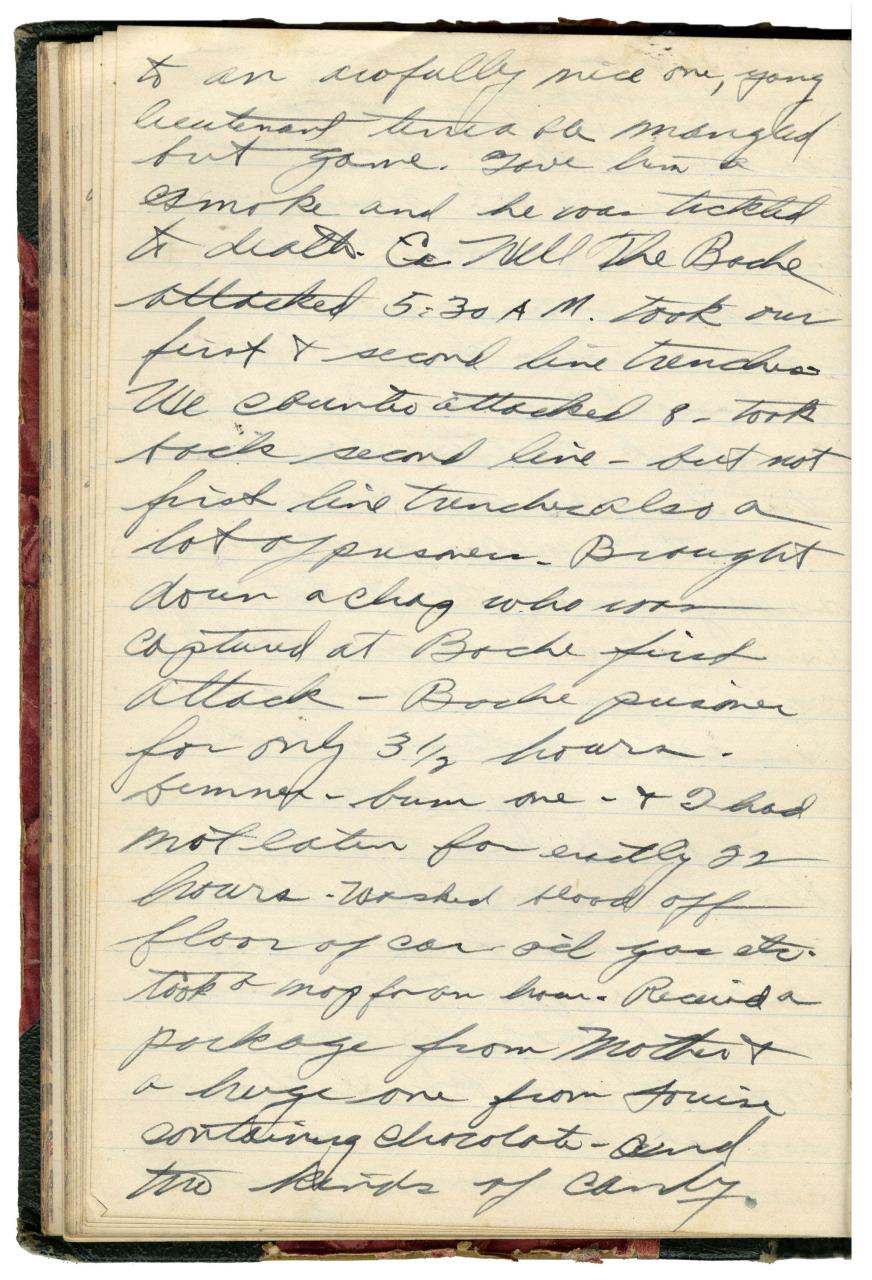 to an awofully nice one, yong
lieutenant terea ble mangled
but game. Gave him a
smoke and he was tickled
to death. Well The Boche
attacked 5:30 A M. took our
first & second line trenches
We counter attacked 8 - took
back second line - but not
first line trenches also a
lot of prisoners. Brought
down a chap who was
captured at Boche first
attack - Boche prisoner
for only 3 1/2 hours.
- bum one - & I had
not eaten for exactly 22
hours - Washed blood off
floor of car oil gas etc.
took a nap for an hour. Received a
package from Mother &
a huge one from Louise
containing chocolate - and
two kinds of candy.